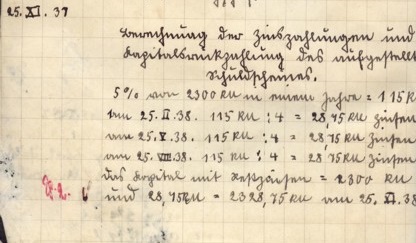 25. XI. 37
Berechnung der Zinszahlungen und
Kapitalsrückzahlung des aufgestellt
Schuldscheines.
5% von 2300 Kč in einem Jahre = 115 K
am 25. II. 38. 115 Kč : 4 = 28,75 Kč Zinsen
am 25. V. 38. 115 Kč : 4 = 28,75 Kč Zinsen
am 25. VIII. 38. 115 Kč : 4 = 28,75 Kč Zinsen
das Kapital mit Restzinsen = 2300 Kč
und 28,75 Kč = 2328,75 Kč am 25. XI. 38